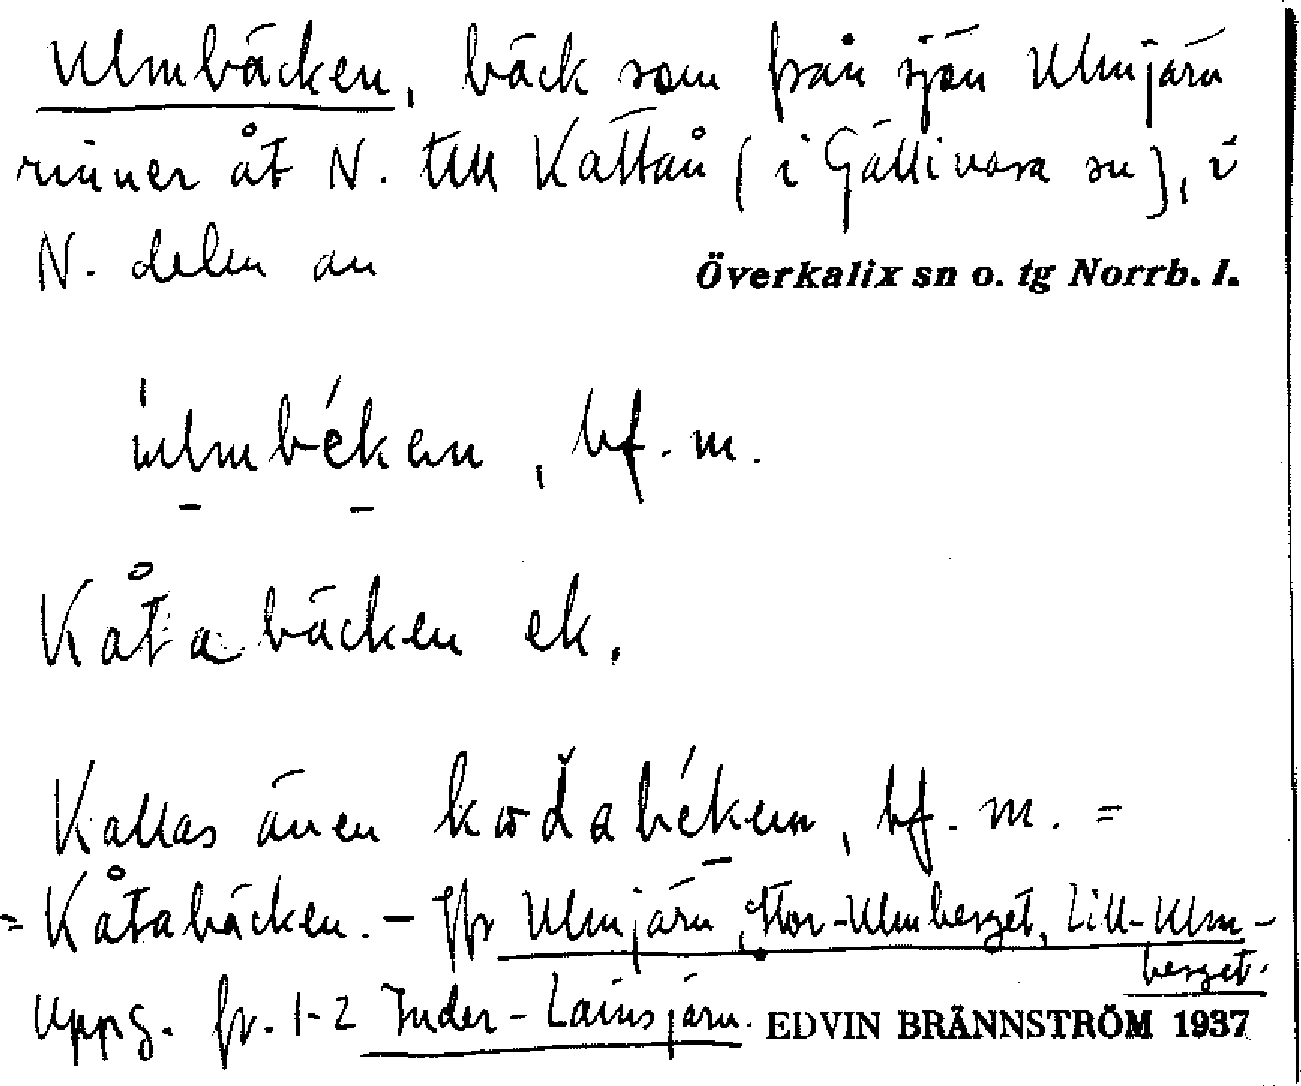 Ulmbäcken, bäck som från sjön Ulmjärn
rinner åt N. till Kattån (i Gällivara sn), i
N. delen av
Överkalix sn o. tg Norrb. l.
bf. m.
Kåtabäcken ek.
Kallas även kodabékem, bf. m. =
= Kåtabäcken. – Jfr Ulmjärn, Stor-Ulmberget, Lill-Ulm-
berget.
Uppg. fr. 1-2 Inder-Lainsjärn. EDVIN BRÄNNSTRÖM 1937